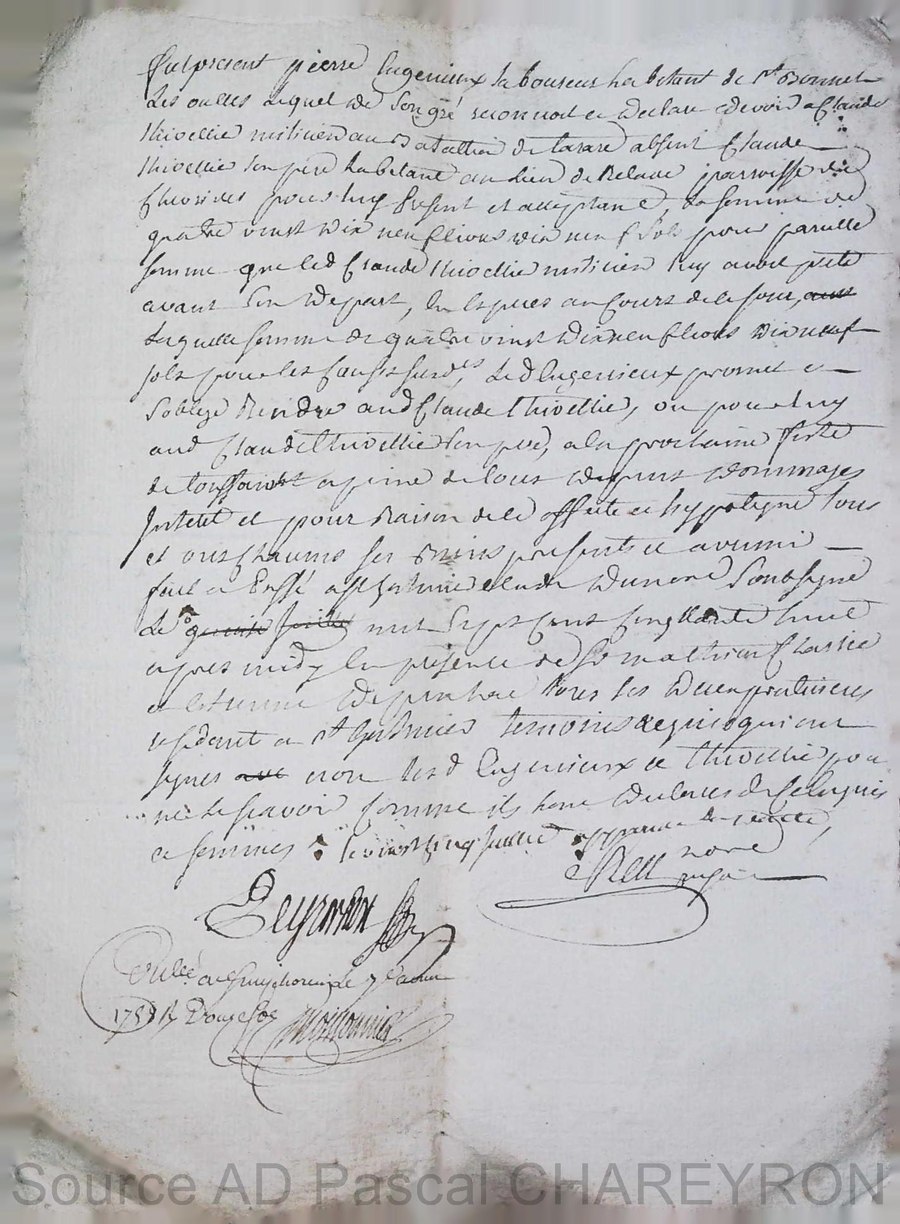 fut present pierre Eugenieux laboureur habitant de st Bonnet
Les oulles Lequel de son gré reconnoit et declare devoir a Claude
thivellie milicien au Batallion de tarare absent Claude
thivellie son pere habitant au lieu de parroisse de
pour luy present et acceptant La somme de
quatre vinst dix neuf livres dix neuf sols pour pareille
somme que led Claude thivellie milicien luy avoit preté
avant son depart, En Especes au Cours de ce jour,
Laquelle somme de quatre vinst dix neuf livres dix neuf
sols pour les Causes susd.es Led Eugenieux promet et
s'oblige Rendre aud Claude thivellie, ou pour luy
aud Claude thivellie son pere, a la prochaine feste
de toussaint a peine de tous depens dommages
Interet et pour Raison de ce affecte et hypoteque tous
et uns Chacuns ses Biens presents et avenir
fait et Passé a st Galmier Etude du nore soussigné
Le mil sept Cent Cinquante huit
apres midy En presence de sr mathieu
et Estienne tous les deux praticiens
residant a st Galmier temoins requis qui ont
signes non lesd Eugenieux et thivellie pour
ne le scavoir Comme ils hont declares de Ce Enquis
et sommes : le vinst Cinq Juillet approuvé
Peyrodox
nore
royal
Conllé a le 7e aoust
1758 R/ Douze sols
Source AD Pascal CHAREYRON